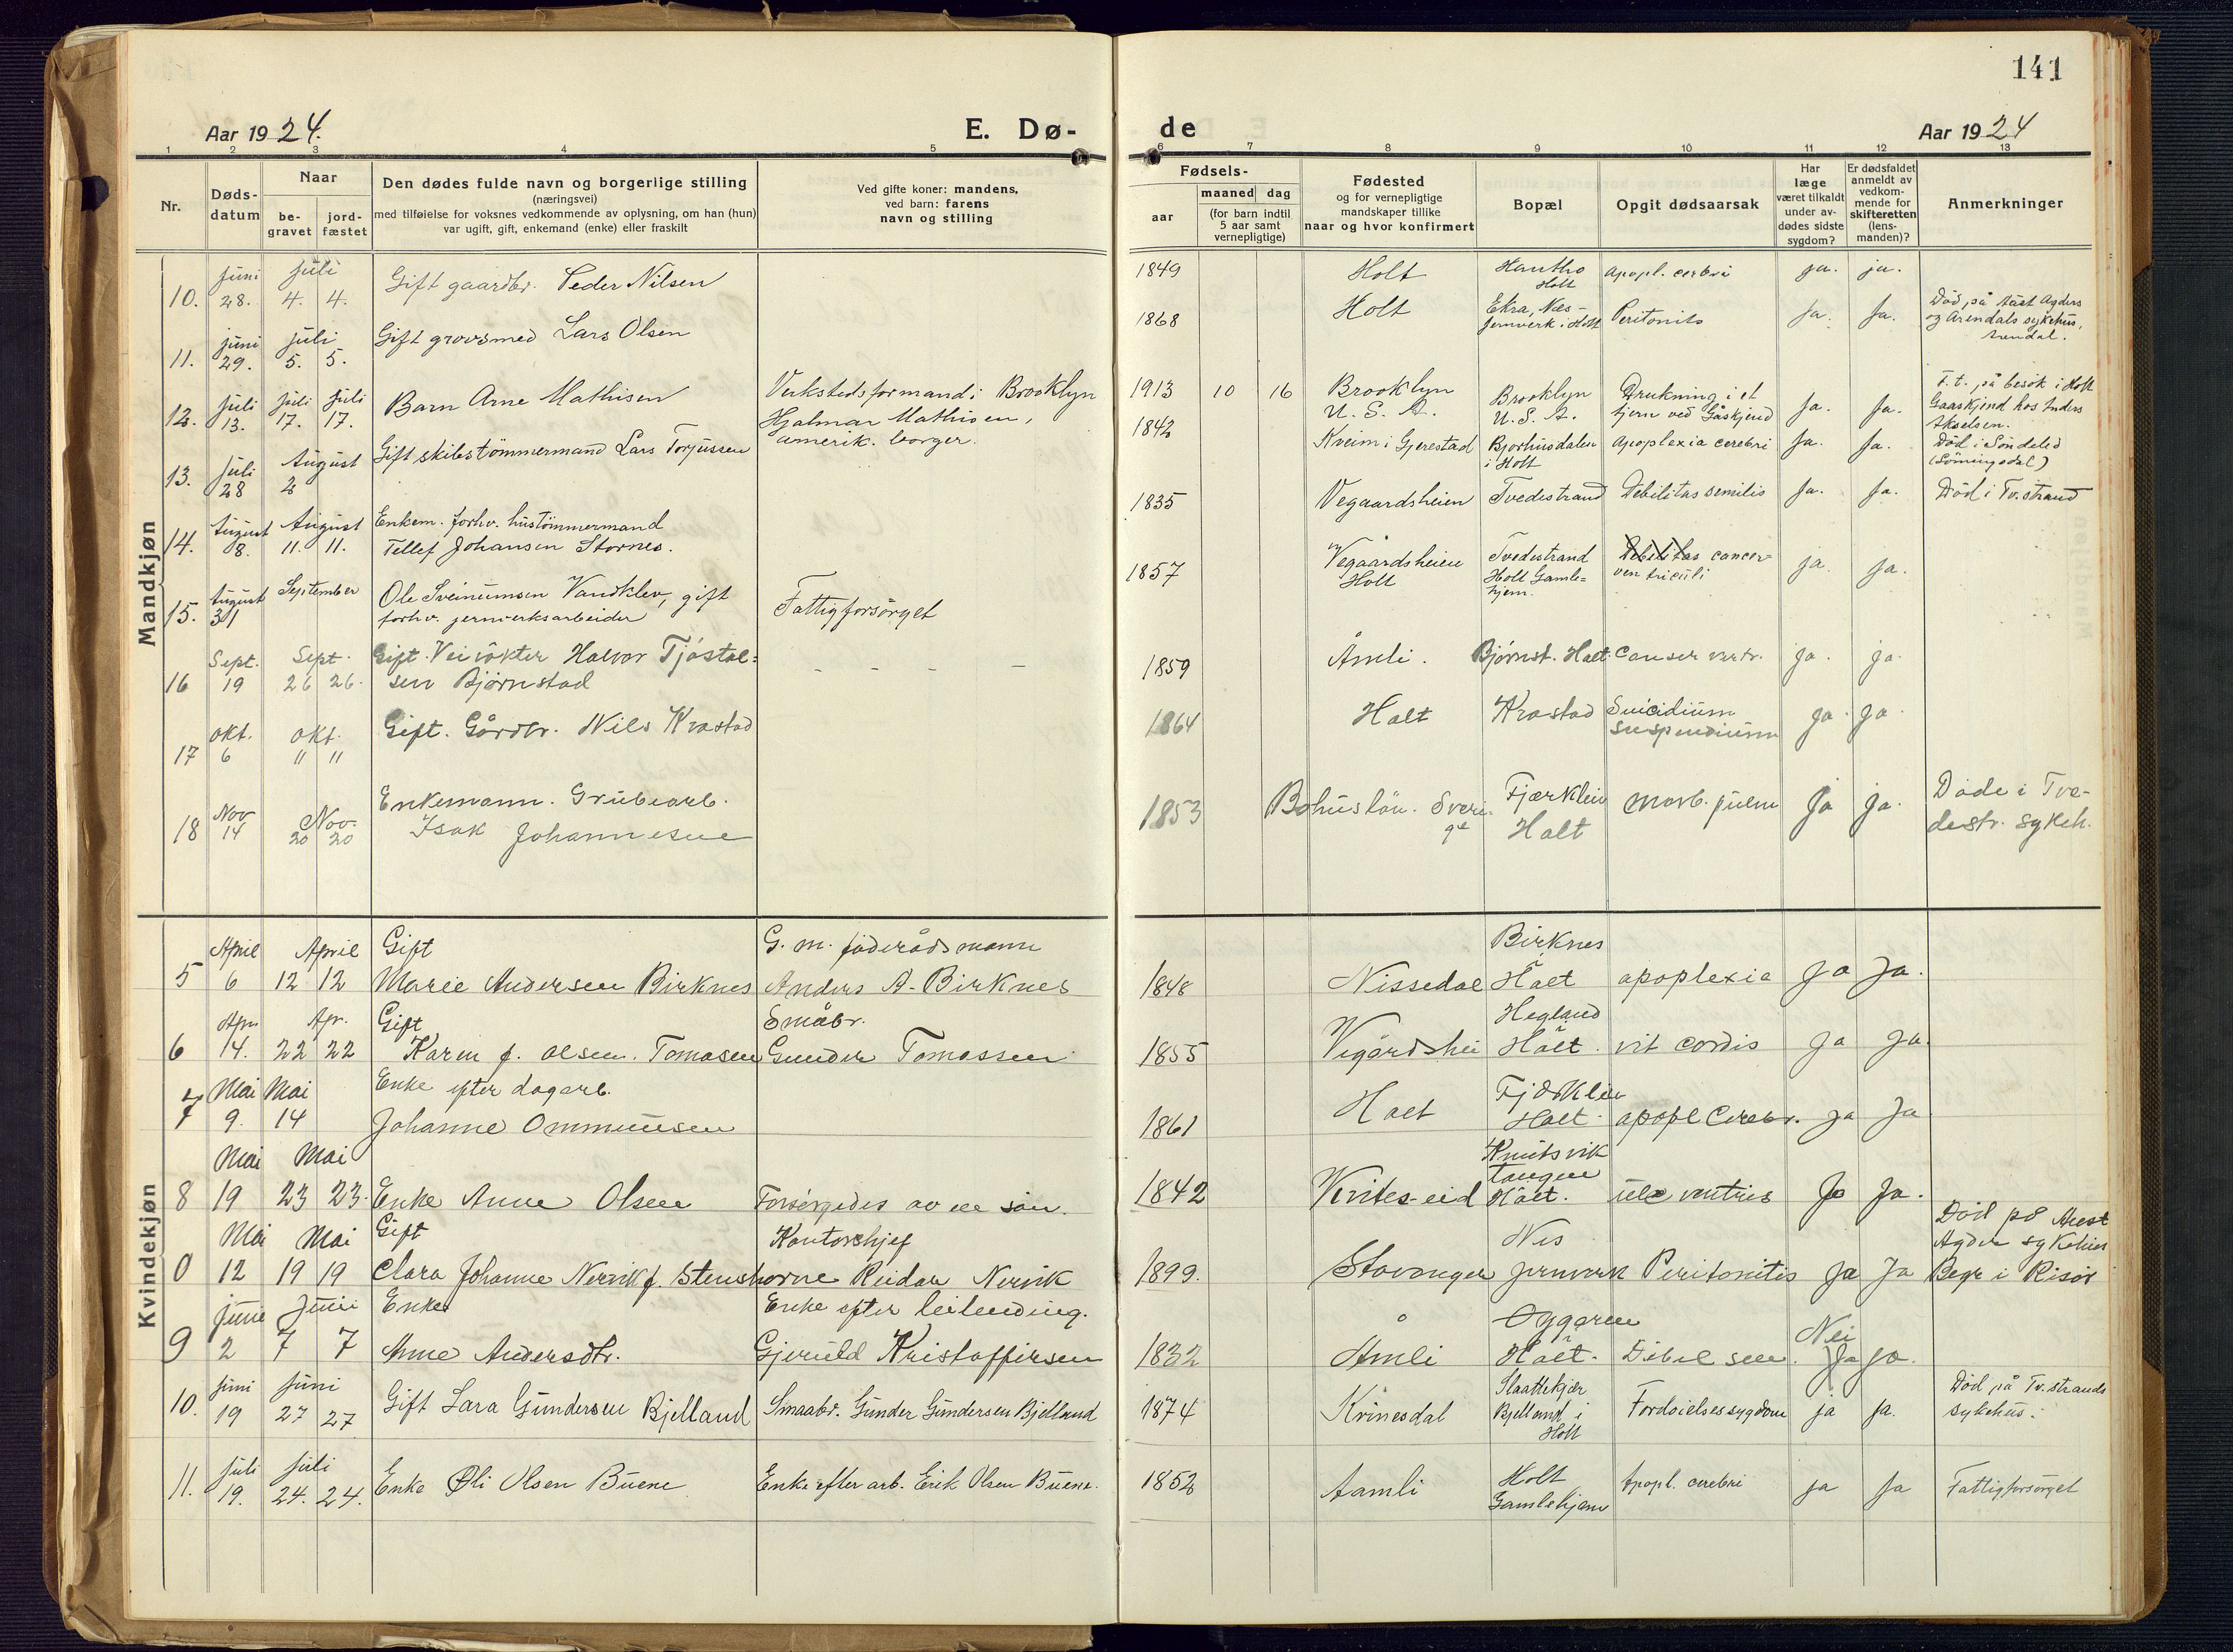 141
Aar 1924.
E. Dø-
de
Aar 1924
1 2 3 4 5 6 7 8 9 10 11 12 13
Nr.
Døds-
datum
Naar
be-
gravet
jord-
fæstet
Den dødes fulde navn og borgerlige stilling
(næringsvei)
med tilføielse for voksnes vedkommende av oplysning, om han (hun)
var ugift, gift, enkemand (enke) eller fraskilt
Ved gifte koner: mandens,
ved barn: farens
navn og stilling
Fødsels-
aar
maaned dag
(for barn indtil
5 aar samt
vernepligtige)
Fødested
og for vernepligtige
mandskaper tillike
naar og hvor konfirmert
Bopæl
Opgit dødsaarsak
Har
læge
været tilkaldt
under av-
dødes sidste
sygdom?
Er dødsfaldet
anmeldt av
vedkom-
mende for
skifteretten
(lens-
manden)?
Anmerkninger
Mandkjøn
juni juli
10. 28. 4. 4. Gift gaardbr. Peder Nilsen
1849 Holt Hantho
Holt
Apopl. cerbri ja. ja.
juni juli
11. 29. 5. 5. Gift grovsmed Lars Olsen
1868 Holt Ekra, Næs-
jernverk i Holt
Peritonits Ja. Ja.
Død på Aust Agders
og Arendals sykehus,
Arendal.
juli juli juli
12. 13. 17. 17. Barn Arne Mathisen
Verkstedsformand i Brooklyn
Hjalmar Mathisen,
amerik. borger.
1913 10 16 Brooklyn
U. S. A.
Brooklyn
U. S. A.
Drukning i et
tjern ved Gåskjend
Ja. Ja.
F. t. på besøk i Holt
Gaaskjend hos Anders
Akselsen.
juli August
13. 28 2 Gift skibstömmermand Lars Torjussen
1842 Kveim i Gjerestad
Bjorhusdalen
i Holt
Apoplexia cerebri Ja. Ja.
Död i Söndeled
August August
14. 8. 11. 11. Enkem. forhv. hustömmermand
Tellef Johansen Stornes.
1835 Vegaardsheien Tvedestrand Debilitas semilis Ja. Ja. Död i Tv.strand
August September
15. 31 Ole Sveinumsen Vandklev, gift
forhv. jernverksarbeider
Fattigforsörget
1857 Vegaardsheien
Holt
Tvedestrand
Holt Gamle=
hjem.
Debilitas cancer
ventriculi
ja. ja.
Sept. Sept.
16 19 26 26. Gift. Veivökter Halvor Tjöstol=
sen Bjørnstad
1859 Åmli. Bjørnst. Holt Canser ventr. ja. ja.
okt. okt.
17 6 " " Gift. Gårdbr. Nils Krastad
1864 Holt Krastad Suicidium
suspendium
ja. ja
Nov Nov.
18 14 20 20 Enkemann. Grubearb.
Isak Johannesen
1853 Bohuslän. Sveri-
ge
Fjærkleiv
Holt
morb. pulm ja ja.
Døde i Tve-
destr. sykeh.
Kvindekjøn
April April Gift
5 6 12 12 Marie Andersen Birknes
G. m. föderådsmann
Anders A. Birknes
1848 Nissedal Birknes
Holt
apoplexia ja Ja.
Apr. Apr. Gift
6 14. 22 22 Karen f. Olsen. Tomasen
Småbr.
Gunder Tomassen
1855 Vegårdshei Hegland
Holt.
vit cordis ja ja.
Mai Mai Enke efter dagarb.
7 9. 14 Johanne Ommunsen
1861 Holt Fjærkleiv
Holt.
apopl Cerebr. ja Ja
Mai Mai
8 19 23 23. Enke Anne Olsen
Forsörgedes av en sön.
1842 Kvites-eid Knutsvik
tangen
Holt.
ulc ventrics Ja Ja.
Mai Mai Gift
0 12 19 19 Clara Johanne Nervik f. Stenshorne
Kontorchjef
Reidar Nervik
1899. Stavanger Nes
jernverk
Peritonitis Ja Ja
Död på Aust
Agder sykehus
Begr i Risör
juni juni Enke
9 2 7 7 Anne Andersdtr.
Enke efter leilending.
Gjeruld Kristoffersen
1832 Åmli Holt. Debil sen. Nei
Ja ja.
juni juni
10. 19 27 27 Gift Lara Gundersen Bjelland
Smaabr. Gunder Gundersen Bjelland
1874 Slaattekjær
Bjelland i
Holt
Fordoielsessygdom ja ja.
Död på Tv.strands
sykehus.
juli juli
11. 19. 24. 24. Enke Oli Olsen Buene
Enke efter arb. Erik Olsen Buene.
1852 Aamli Holt
Gamlehjem
Apopl. cerebri ja Ja Fattigforsörget